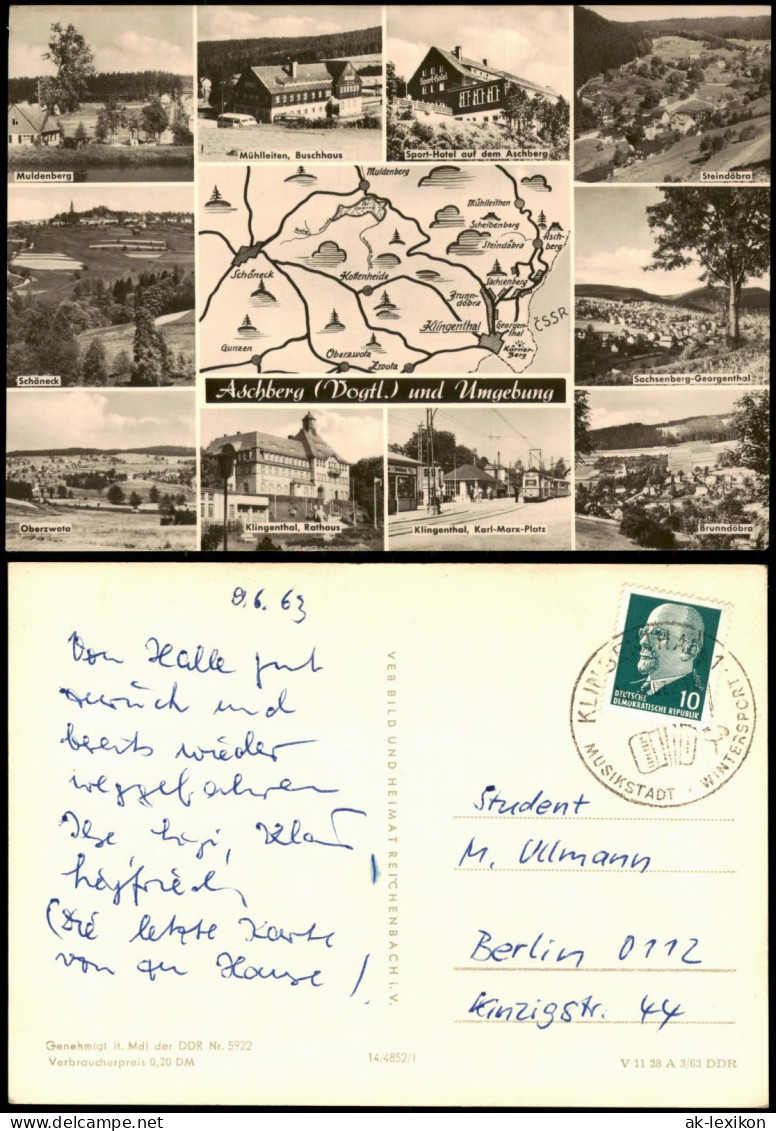 Muldenberg
Mühlleiten, Buschhaus
Sport-Hotel
Sport-Hotel auf dem Aschberg
Steindöbra
Schöneck
Muldenberg
Mühlleithen
Scheibenberg
Steindöbra
Aschberg
Schöneck
Kottenheide
Sachsenberg
Brunndöbra
Klingenthal
Georgenthal
ČSSR
Gunzen
Oberzwota
Zwota
Körnerberg
Aschberg (Vogtl.) und Umgebung
Sachsenberg-Georgenthal
Oberzwota
Klingenthal, Rathaus
Klingenthal, Karl-Marx-Platz
Brunndöbra
9.6.63
Von Halle gut
zurück und
bereits wieder
weggefahren
(Die letzte Karte
von zu Hause!
VEB BILD UND HEIMAT REICHENBACH i. V.
DEUTSCHE
DEMOKRATISCHE REPUBLIK
10
MUSIKSTADT · WINTERSPORT
Student
M. Ullmann
Berlin 0112
Kinzigstr. 44
Genehmigt lt. MdI der DDR Nr. 5922
Verbraucherpreis 0,20 DM
14/4852/1
V 11 28 A 3/63 DDR
ak-lexikon